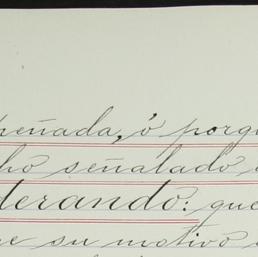 peñada, ó porq
ho señalado
derando: que
ue su motivo